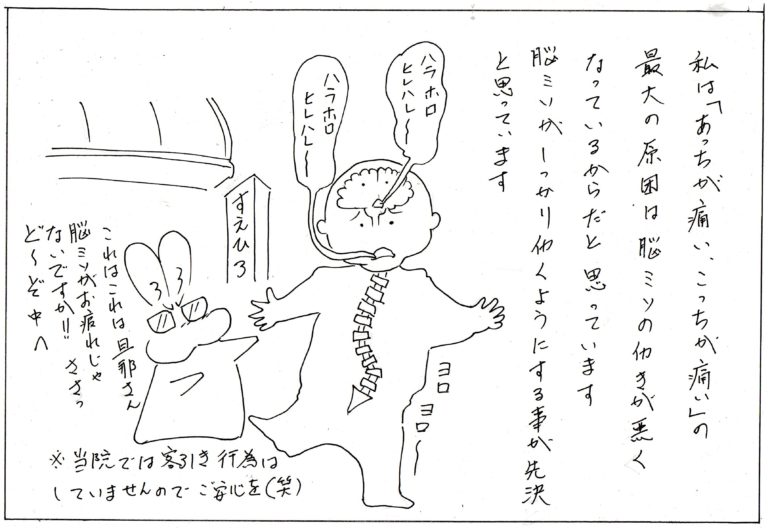 私は「あっちが痛い、こっちが痛い」の
最大の原因は脳ミソの働きが悪く
なっているからだと思っています
脳ミソがしっかり働くようにする事が先決
と思っています
ハラホロ
ヒレハレ〜
ハラホロ
ヒレハレ〜
すえひろ
ヨロ
ヨロ〜
これはこれは旦那さん
脳ミソがお疲れじゃ
ないですか!! ささっ
ど〜ぞ中へ
※当院では客引き行為は
していませんのでご安心を(笑)